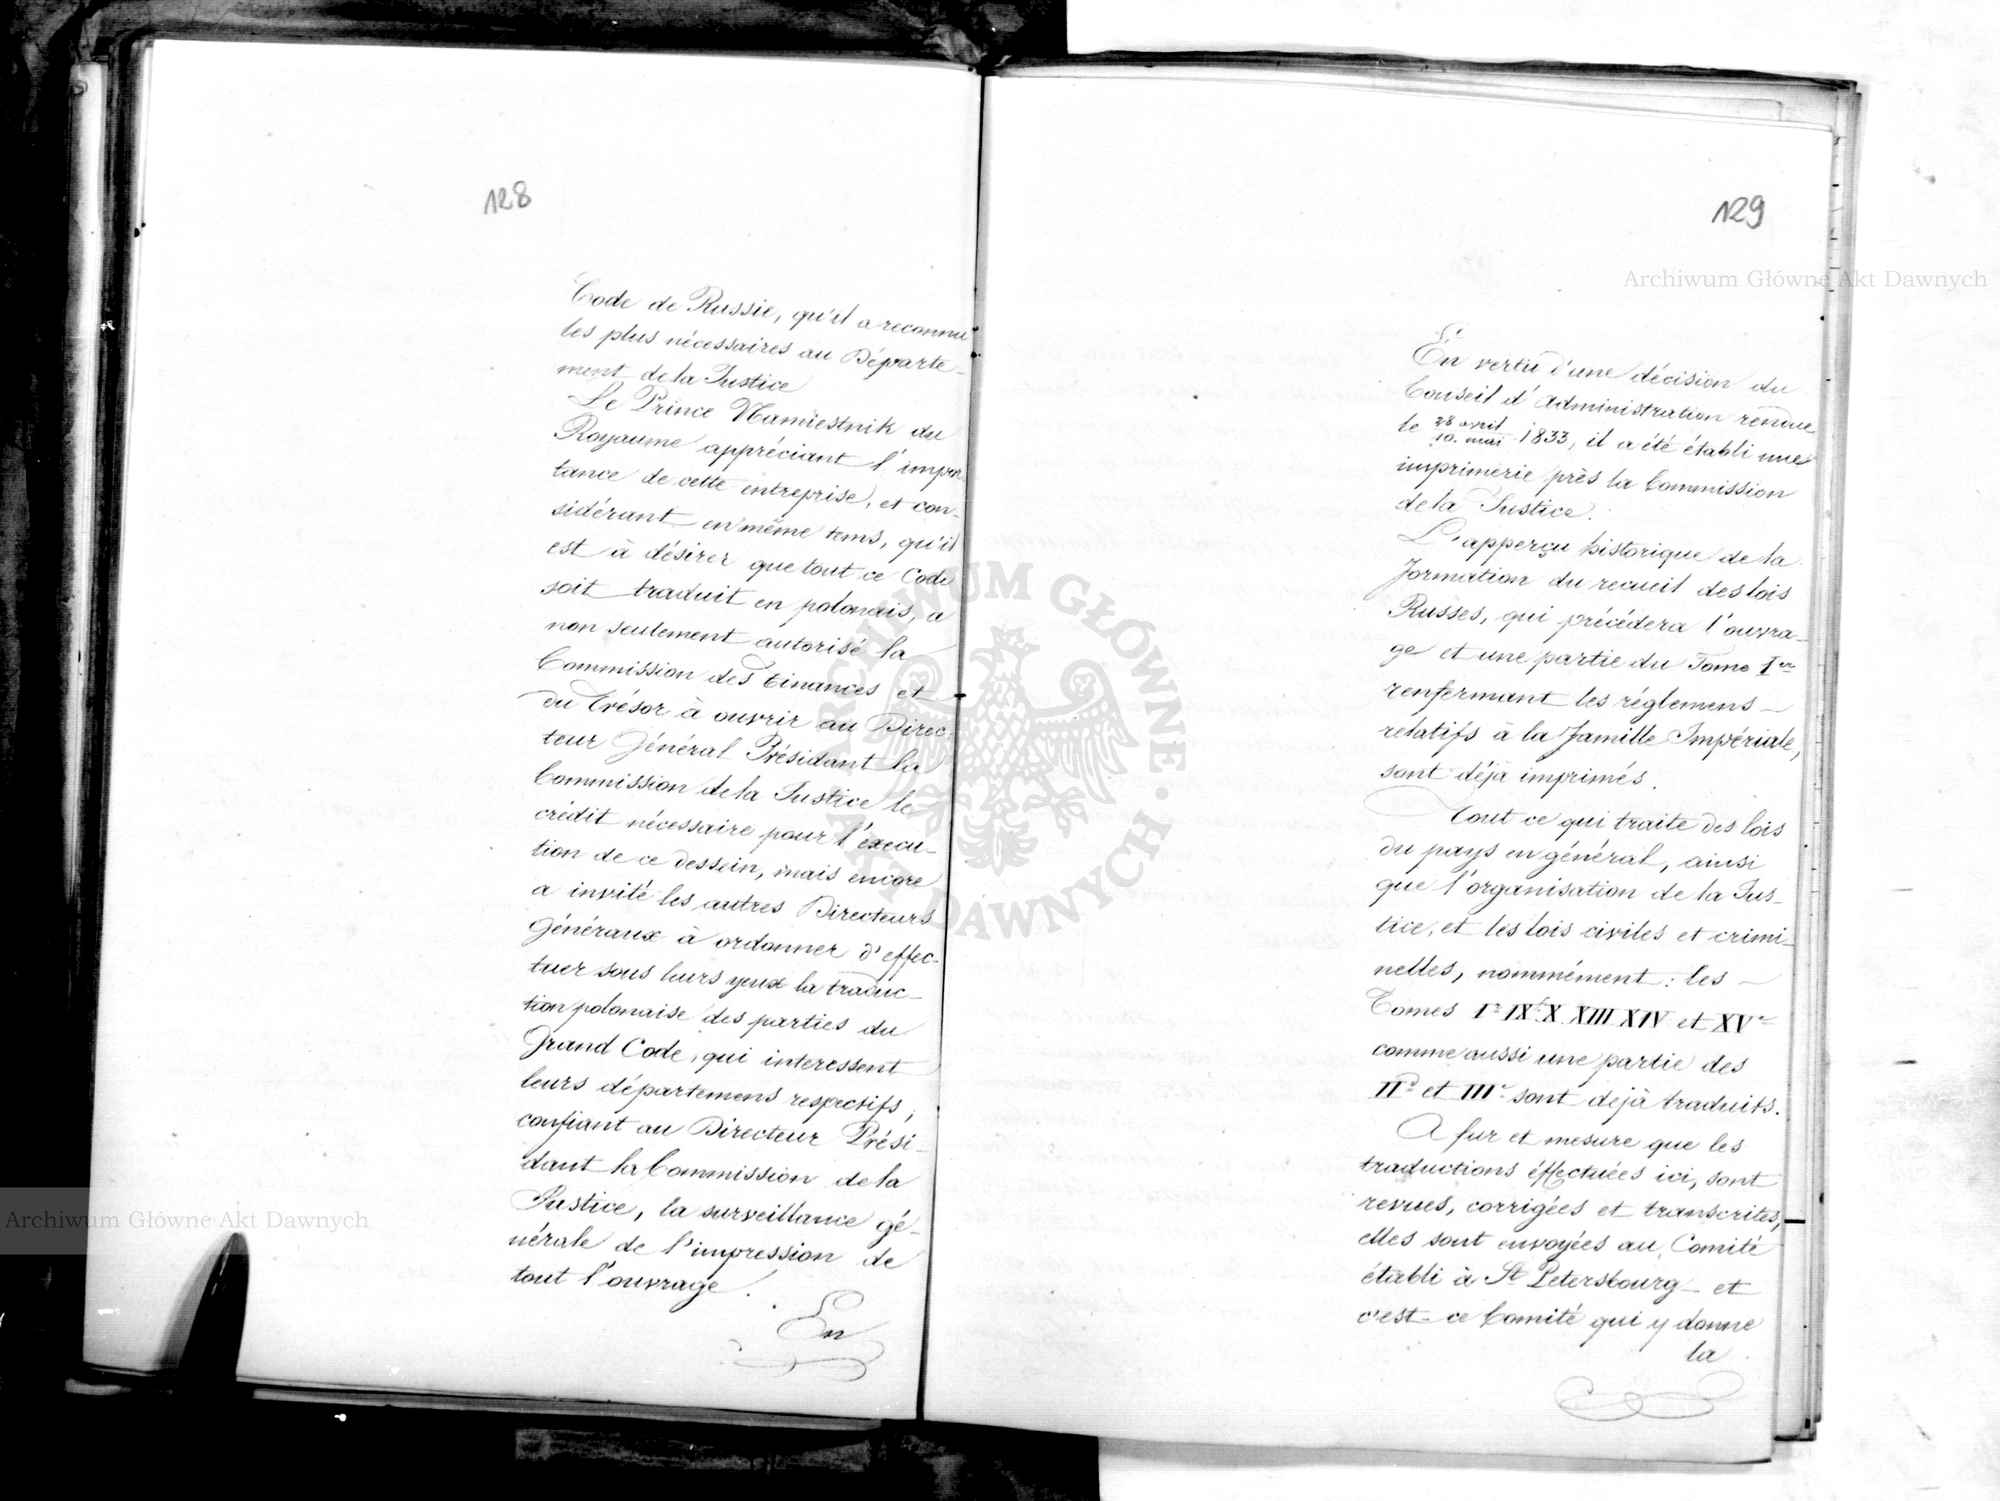 128
Code de Russie, qu'il a reconnu
les plus nécessaires au Départe-
ment de la Justice
Le Prince Namiestnik du
Royaume appréciant l'impor
tance de cette entreprise, et con-
sidérant en même tems, qu'il
est à désirer que tout ce Code
soit traduit en polonais, a
non seulement autorisé la
Commission des Finances et
du Trésor à ouvrir au Direc-
teur Général Présidant la
Commission de la Justice le
crédit nécessaire pour l'éxécu-
tion de ce dessein, mais encore
a invité les autres Directeurs
Généraux à ordonner d'effec-
tuer sous leurs yeux la traduc-
tion polonaise des parties du
Grand Code, qui interessent
leurs départemens respectifs,
confiant au Directeur Prési-
dant la Commission de la
Justice, la surveillance gé-
nérale de l'impression de
tout l'ouvrage.
En
129
En vertu d'une décision du
Conseil d'Administration rendue
le 28 avril
10. mai 1833, il a été établi une
imprimerie près la Commission
de la Justice.
L'apperçu historique de la
formation du recueil des lois
Russes, qui précédera l'ouvra-
ge et une partie du Tome Ier
renfermant les réglemens
relatifs à la famille Impériale,
sont déjà imprimés.
Tout ce qui traite des lois
du pays en général, ainsi
que l'organisation de la Jus-
tice, et les lois civiles et crimi-
nelles, nommément: les
Tomes Ir IX X XIII XIV et XVe
comme aussi une partie des
IId et IIIe sont dejà traduits.
A fur et mesure que les
traductions éffectuées ici, sont
revues, corrigées et transcrites,
elles sont envoyées au Comité
établi à St Petersbourg et
c'est ce Comité qui y donne
la
Archiwum Główne Akt Dawnych
Archiwum Główne Akt Dawnych
ARCHIWUM GŁÓWNE AKT DAWNYCH